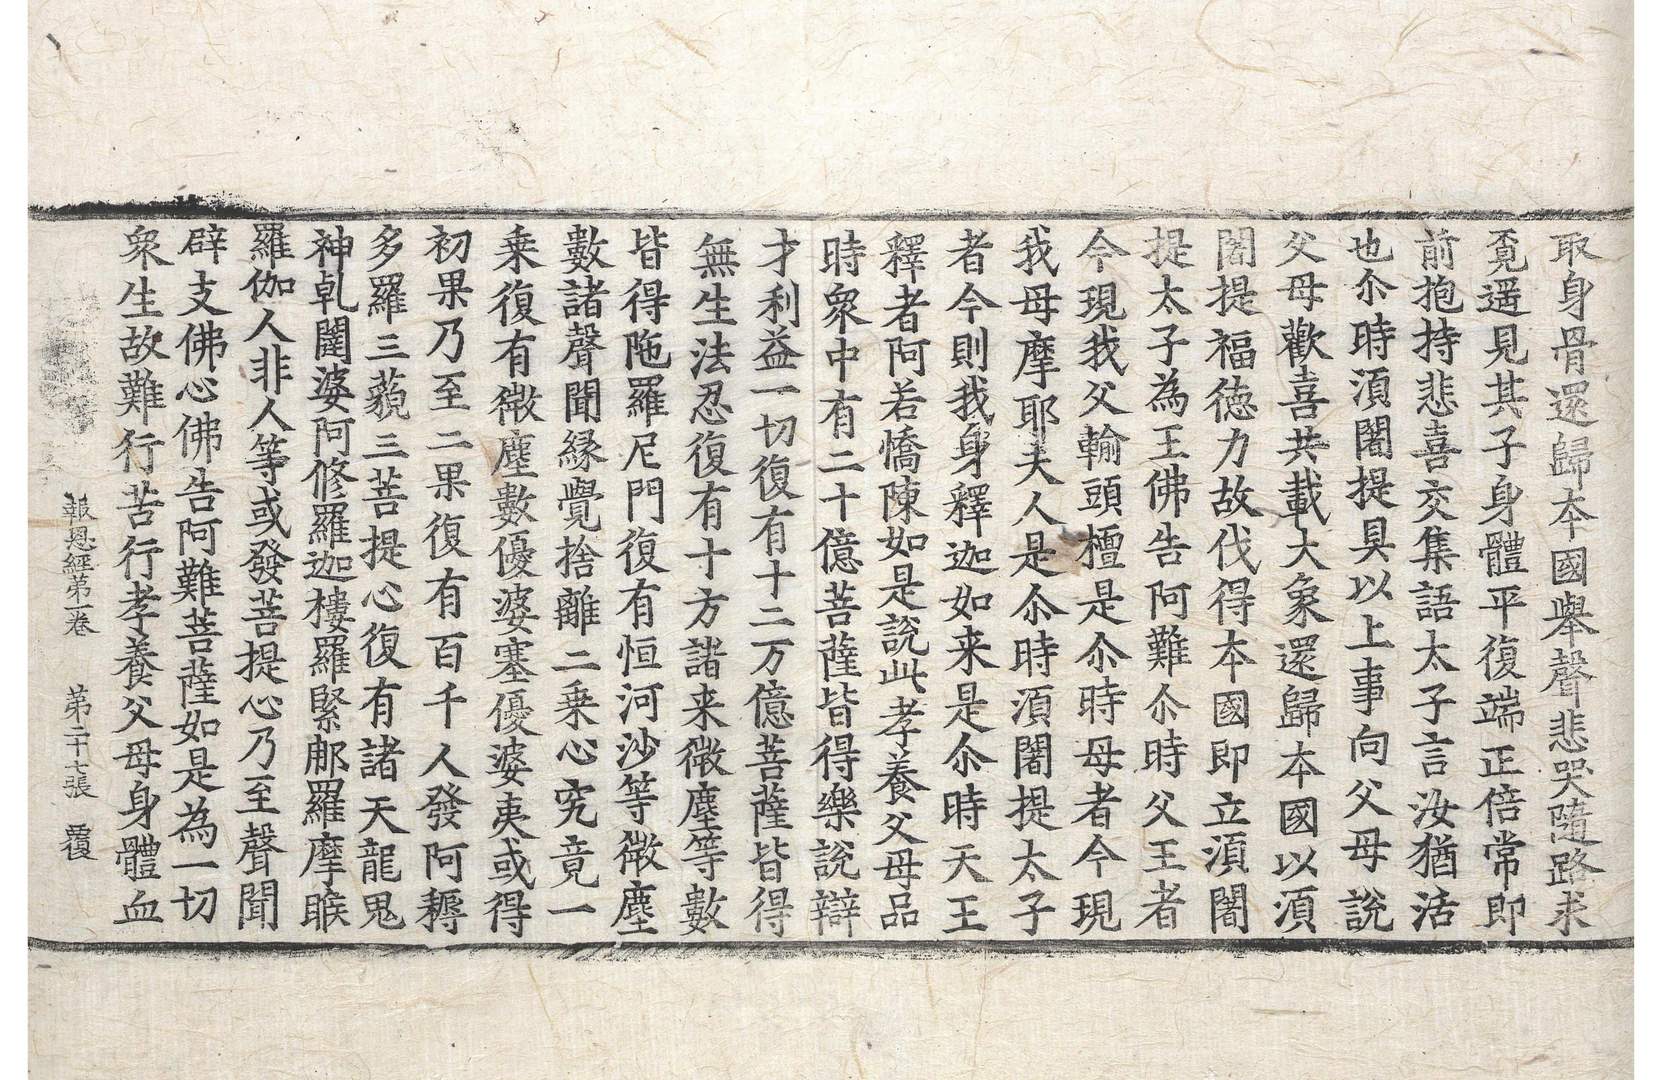 取身骨還歸本國舉聲悲哭隨路求
覔遥見其子身體平復端正倍常即
前抱持悲喜交集語太子言汝猶活
也尒時湏闍提具以上事向父母說
父母歡喜共載大象還歸本國以湏
闍提福徳力故伐得本國即立湏闍
提太子為王佛告阿難尒時父王者
今現我父輸頭檀是尒時母者今現
我母摩耶夫人是尒時湏闍提太子
者今則我身釋迦如来是尒時天王
釋者阿若憍陳如是說此孝養父母品
時衆中有二十億菩薩皆得樂說辯
才利益一切復有十二万億菩薩皆得
無生法忍復有十方諸来微塵等數
皆得陁羅尼門復有恒河沙等微塵
數諸聲聞縁覺捨離二乗心究竟一
乗復有微塵數優婆塞優婆夷或得
初果乃至二果復有百千人發阿耨
多羅三藐三菩提心復有諸天龍鬼
神乹闥婆阿修羅迦樓羅緊郍羅摩睺
羅伽人非人等或發菩提心乃至聲聞
辟支佛心佛告阿難菩薩如是為一切
衆生故難行苦行孝養父母身體血
報恩經第一卷 第二十七張 覆